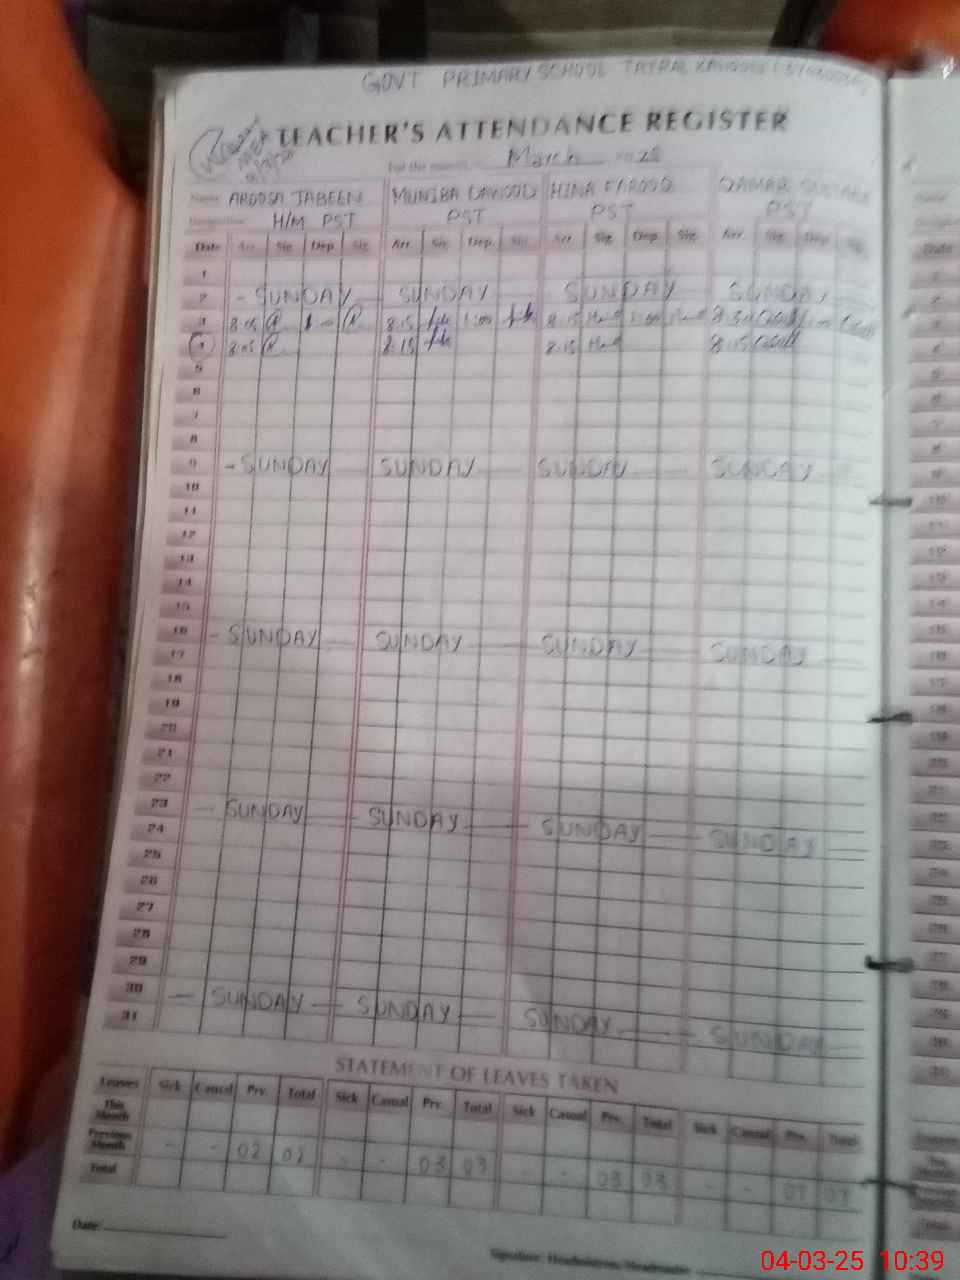 GOVT PRIMARY SCHOOL
TEACHER'S ATTENDANCE REGISTER
For the month March 2025
Name AROOSA JABEEN MUNIBA DAWOOD HINA FAROOQ QAMAR
H/M PST PST PST PST
Date Arr. Sig. Dep. Sig. Arr. Sig. Dep. Sig. Arr. Sig. Dep. Sig. Arr. Sig. Dep. Sig.
1
2 - SUNDAY SUNDAY SUNDAY SUNDAY
3 8:05 8:15 1:00 8:15 1:00 8:30 1:00
4 8:05 8:15 8:15 8:15
5
6
7
8
9 - SUNDAY SUNDAY SUNDAY SUNDAY
10
11
12
13
14
15
16 - SUNDAY SUNDAY SUNDAY SUNDAY
17
18
19
20
21
22
23 - SUNDAY SUNDAY SUNDAY SUNDAY
24
25
26
27
28
29
30 - SUNDAY - SUNDAY SUNDAY SUNDAY
31
STATEMENT OF LEAVES TAKEN
Leaves Sick Casual Prv. Total Sick Casual Prv. Total Sick Casual Prv. Total Sick Casual Prv. Total
This Month
Previous Month - - 02 02 - - 03 03 - - 03 03 - -
Total
Date:
Signature: Headmistress/Headmaster
04-03-25 10:39